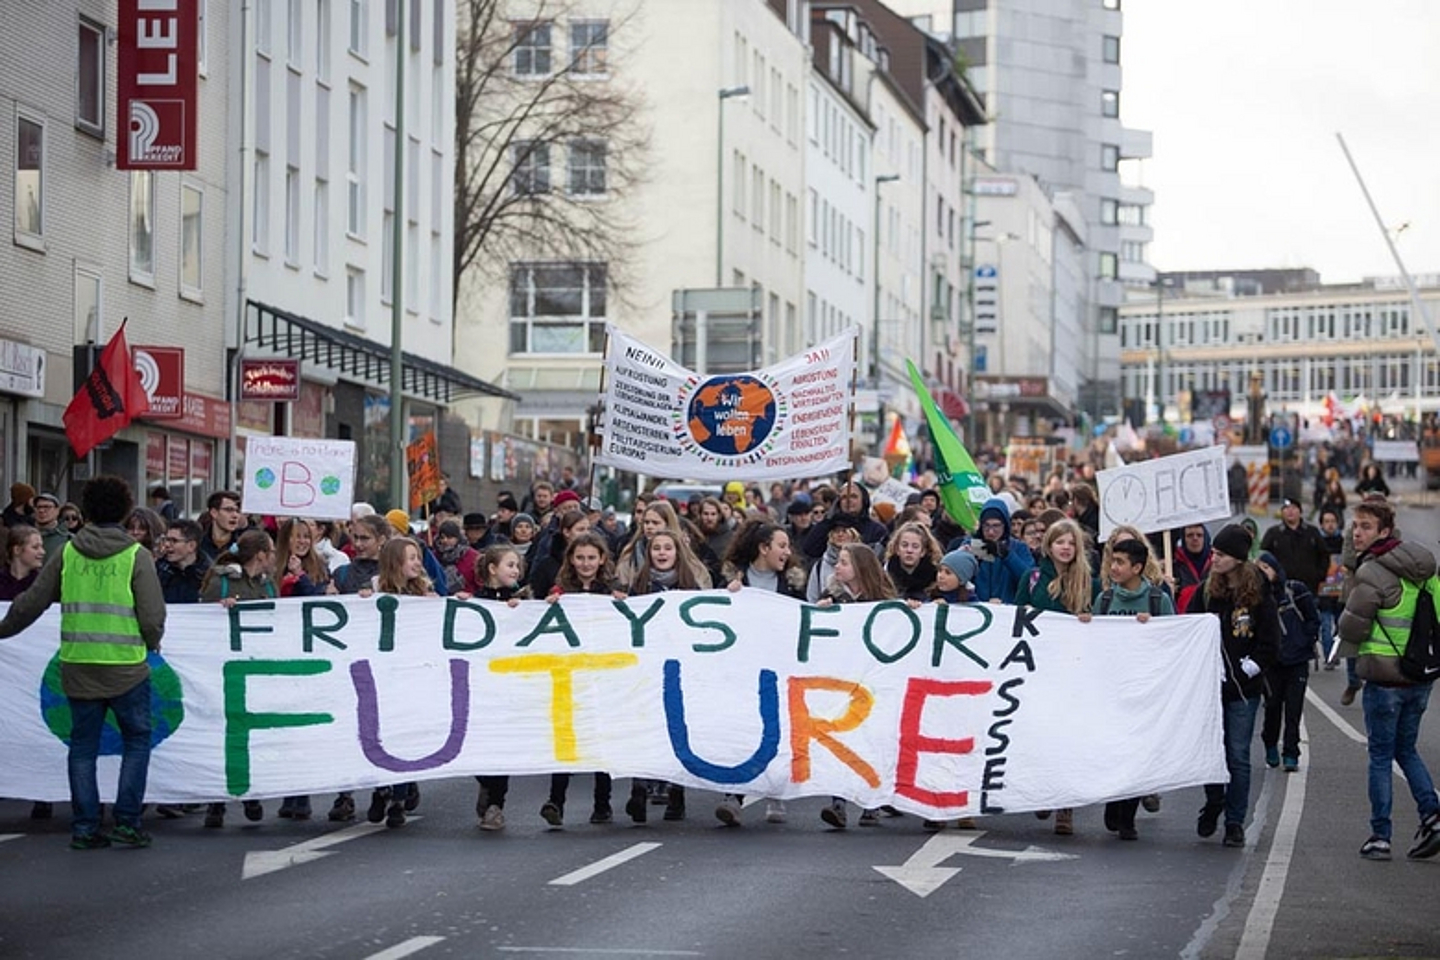 LEI
PFAND
KREDIT
NEIN!!
AUFRÜSTUNG
ZERSTÖRUNG DER
LEBENSGRUNDLAGEN
KLIMAWANDEL
ARTENSTERBEN
MILITARISIERUNG
EUROPAS
Wir
wollen
leben
JA!!
ABRÜSTUNG
NACHHALTIG
WIRTSCHAFTEN
ENERGIEWENDE
LEBENSRÄUME
ERHALTEN
ENTSPANNUNGSPOLITIK
Türkischer
Goldhaus
PFAND
There is no Planet
B
ACT!
Orga
FRIDAYS FOR
FUTURE
KASSEL